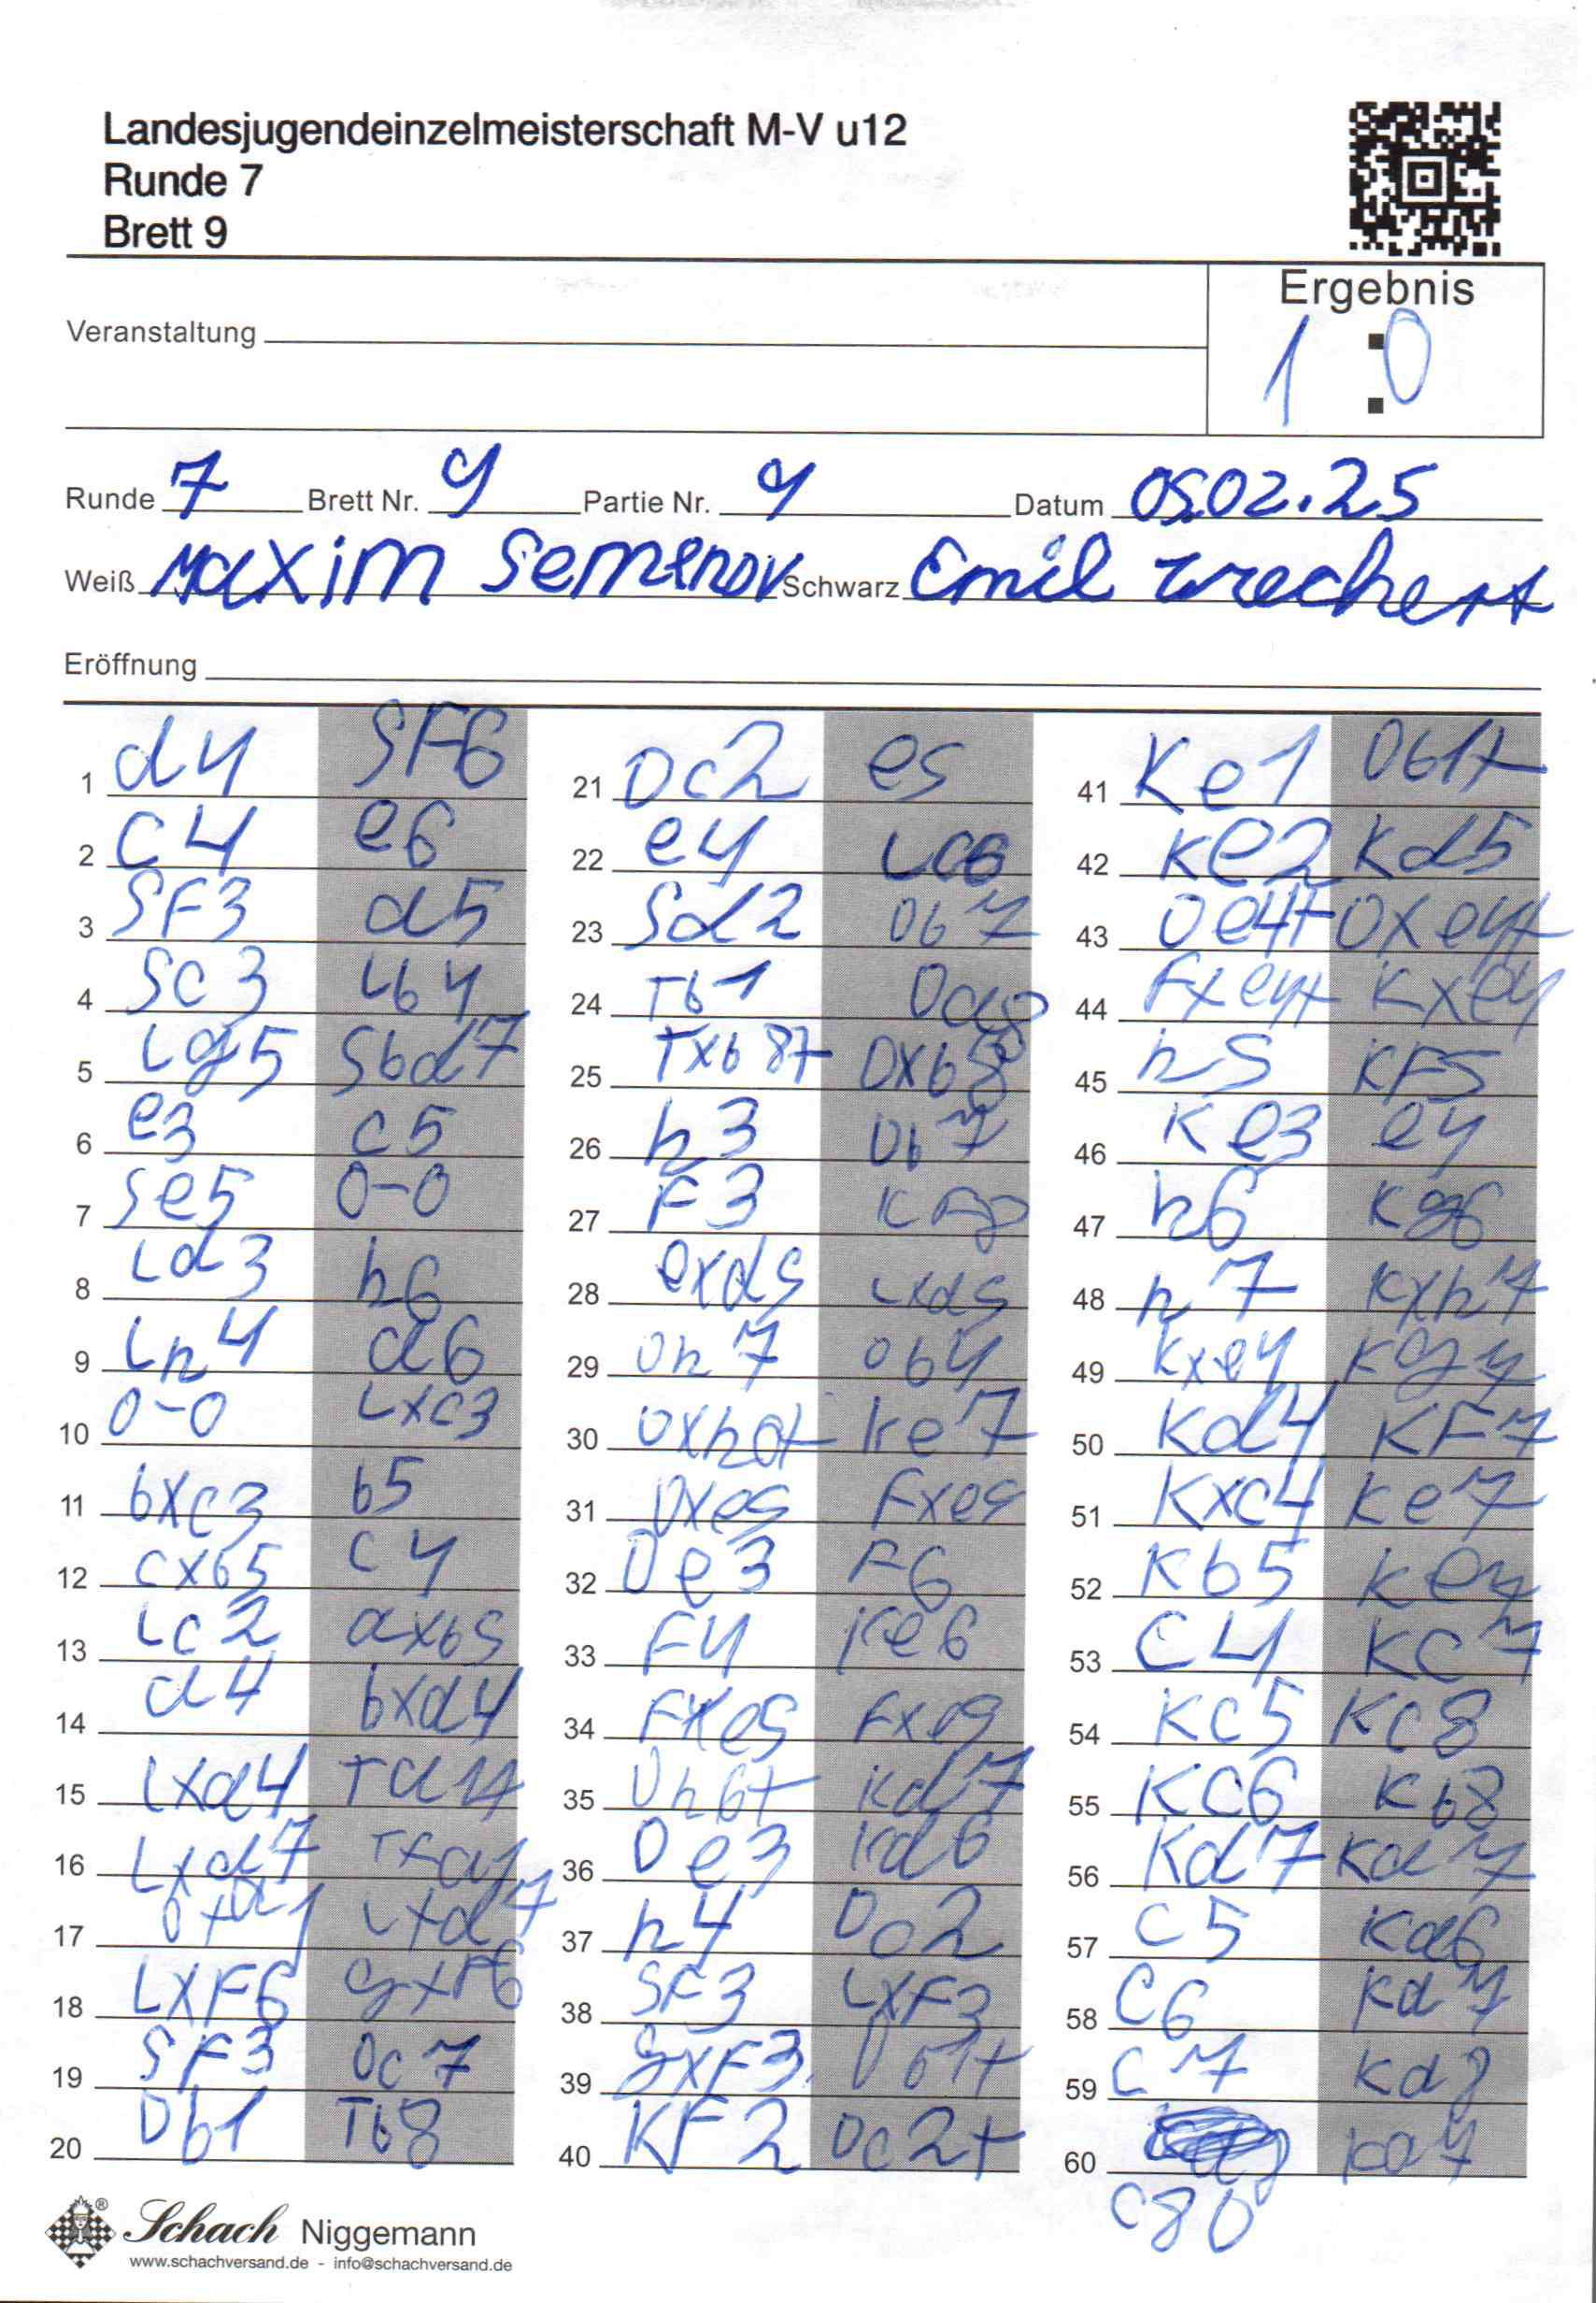 Landesjugendeinzelmeisterschaft M-V u12
Runde 7
Brett 9
Ergebnis
1 : 0
Veranstaltung
Runde 7 Brett Nr. 9 Partie Nr. 9 Datum 05.02.25
Weiß Maxim Semenov Schwarz Emil Wrechert
Eröffnung
1 d4 SF6
2 C4 e6
3 SF3 d5
4 Sc3 Lb4
5 Lg5 Sbd7
6 e3 c5
7 Se5 0-0
8 Ld3 h6
9 Lh4 a6
10 0-0 Lxc3
11 bxc3 b5
12 cxb5 c4
13 Lc2 axb5
14 a4 bxa4
15 Lxa4 Txa4
16 Lxd7
17 Lxd7
18 LXF6 gxF6
19 SF3 Dc7
20 Db1 Tb8
21 Dc2 e5
22 e4 Lc6
23 Sd2 Db7
24 Tb1 Da8
25 Txb8+ Dxb8
26 h3 Db7
27 F3 KF8
28 exd5 Lxd5
29 Dh7 Db4
30 Dxh6+ Ke7
31 Dxe5 Fxe5
32 De3 F6
33 F4 Ke6
34 FXe5 Fxe5
35 Dh6+ Kd7
36 De3 Kd6
37 h4 Da2
38 SF3 LXF3
39 gxF3 Db1+
40 KF2 Dc2+
41 Ke1 Db1+
42 Ke2 Kd5
43 De4+ DXe4+
44 Fxe4+ Kxe4
45 h5 KF5
46 Ke3 e4
47 h6 Kg6
48 h7 Kxh7
49 Kxe4 Kg7
50 Kd4 KF7
51 Kxc4 Ke7
52 Kb5
53 C4 KC7
54 KC5 Kc8
55 KC6 Kb8
56 Kd7 Ka7
57 C5
58 C6
59 C7
60
C8D
Schach Niggemann
www.schachversand.de - info@schachversand.de